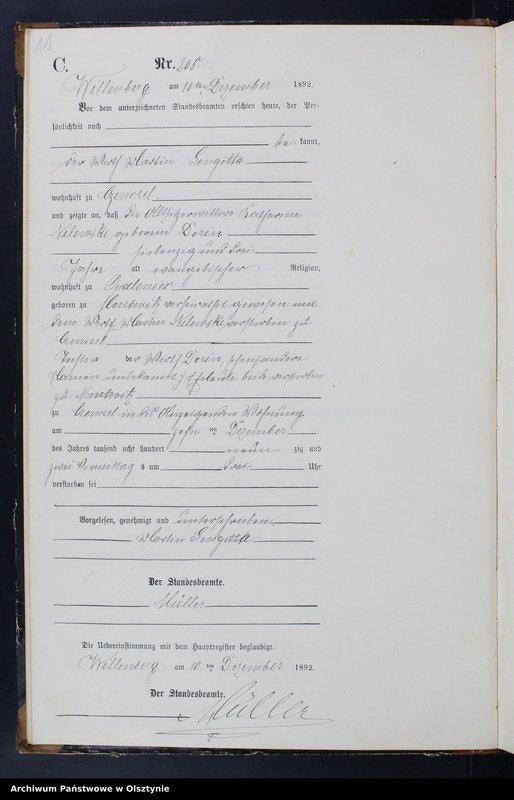 11
C.
Nr. 205
Willenberg am 10 ten Dezember 1892.
Vor dem unterzeichneten Standesbeamten erschien heute, der Per-
sönlichkeit nach
be kannt,
der Wirth Martin Gengotta
wohnhaft zu
und zeigte an, daß die Altsitzerwittwe Katharine
Nilewski geborene Doren
siebenzig und drei
Jahre alt evangelischer Religion,
wohnhaft zu Opalenietz
geboren zu verheirathet gewesen mit
dem Wirth Martin Nilewski verstorben zu
Tochter der Wirth Doren
Namen unbekannt Eheleute beide verstorben
zu
zu in des Anzeigenden Wohnung
am zehn ten Dezember
des Jahres tausend acht hundert neun zig und
zwei Vormittag s um drei Uhr
verstorben sei
Vorgelesen, genehmigt und unterschrieben
Martin Gengotta
Der Standesbeamte.
Müller
Die Uebereinstimmung mit dem Hauptregister beglaubigt.
Willenberg am 10 ten Dezember 1892.
Der Standesbeamte.
Müller
Archiwum Państwowe w Olsztynie